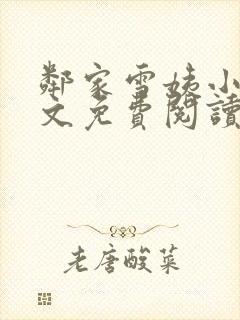 鄰家雪姨小
文免費閱讀
老唐酸菜